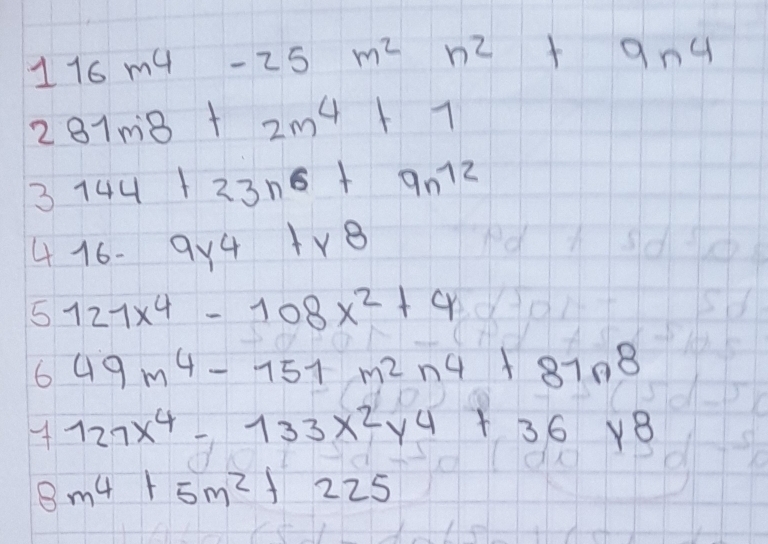 1 16 m4 - 25 m² n² + 9n4
2 81m8 + 2m⁴ + 1
3 144 + 23n⁶ + 9n¹²
4 16- 9y4 + y8
5 121x⁴ - 108x² + 4
6 49m⁴ - 151 m²n⁴ + 81n⁸
7 121x⁴ - 133x²y4 + 36 y8
8 m⁴ + 5m² + 225